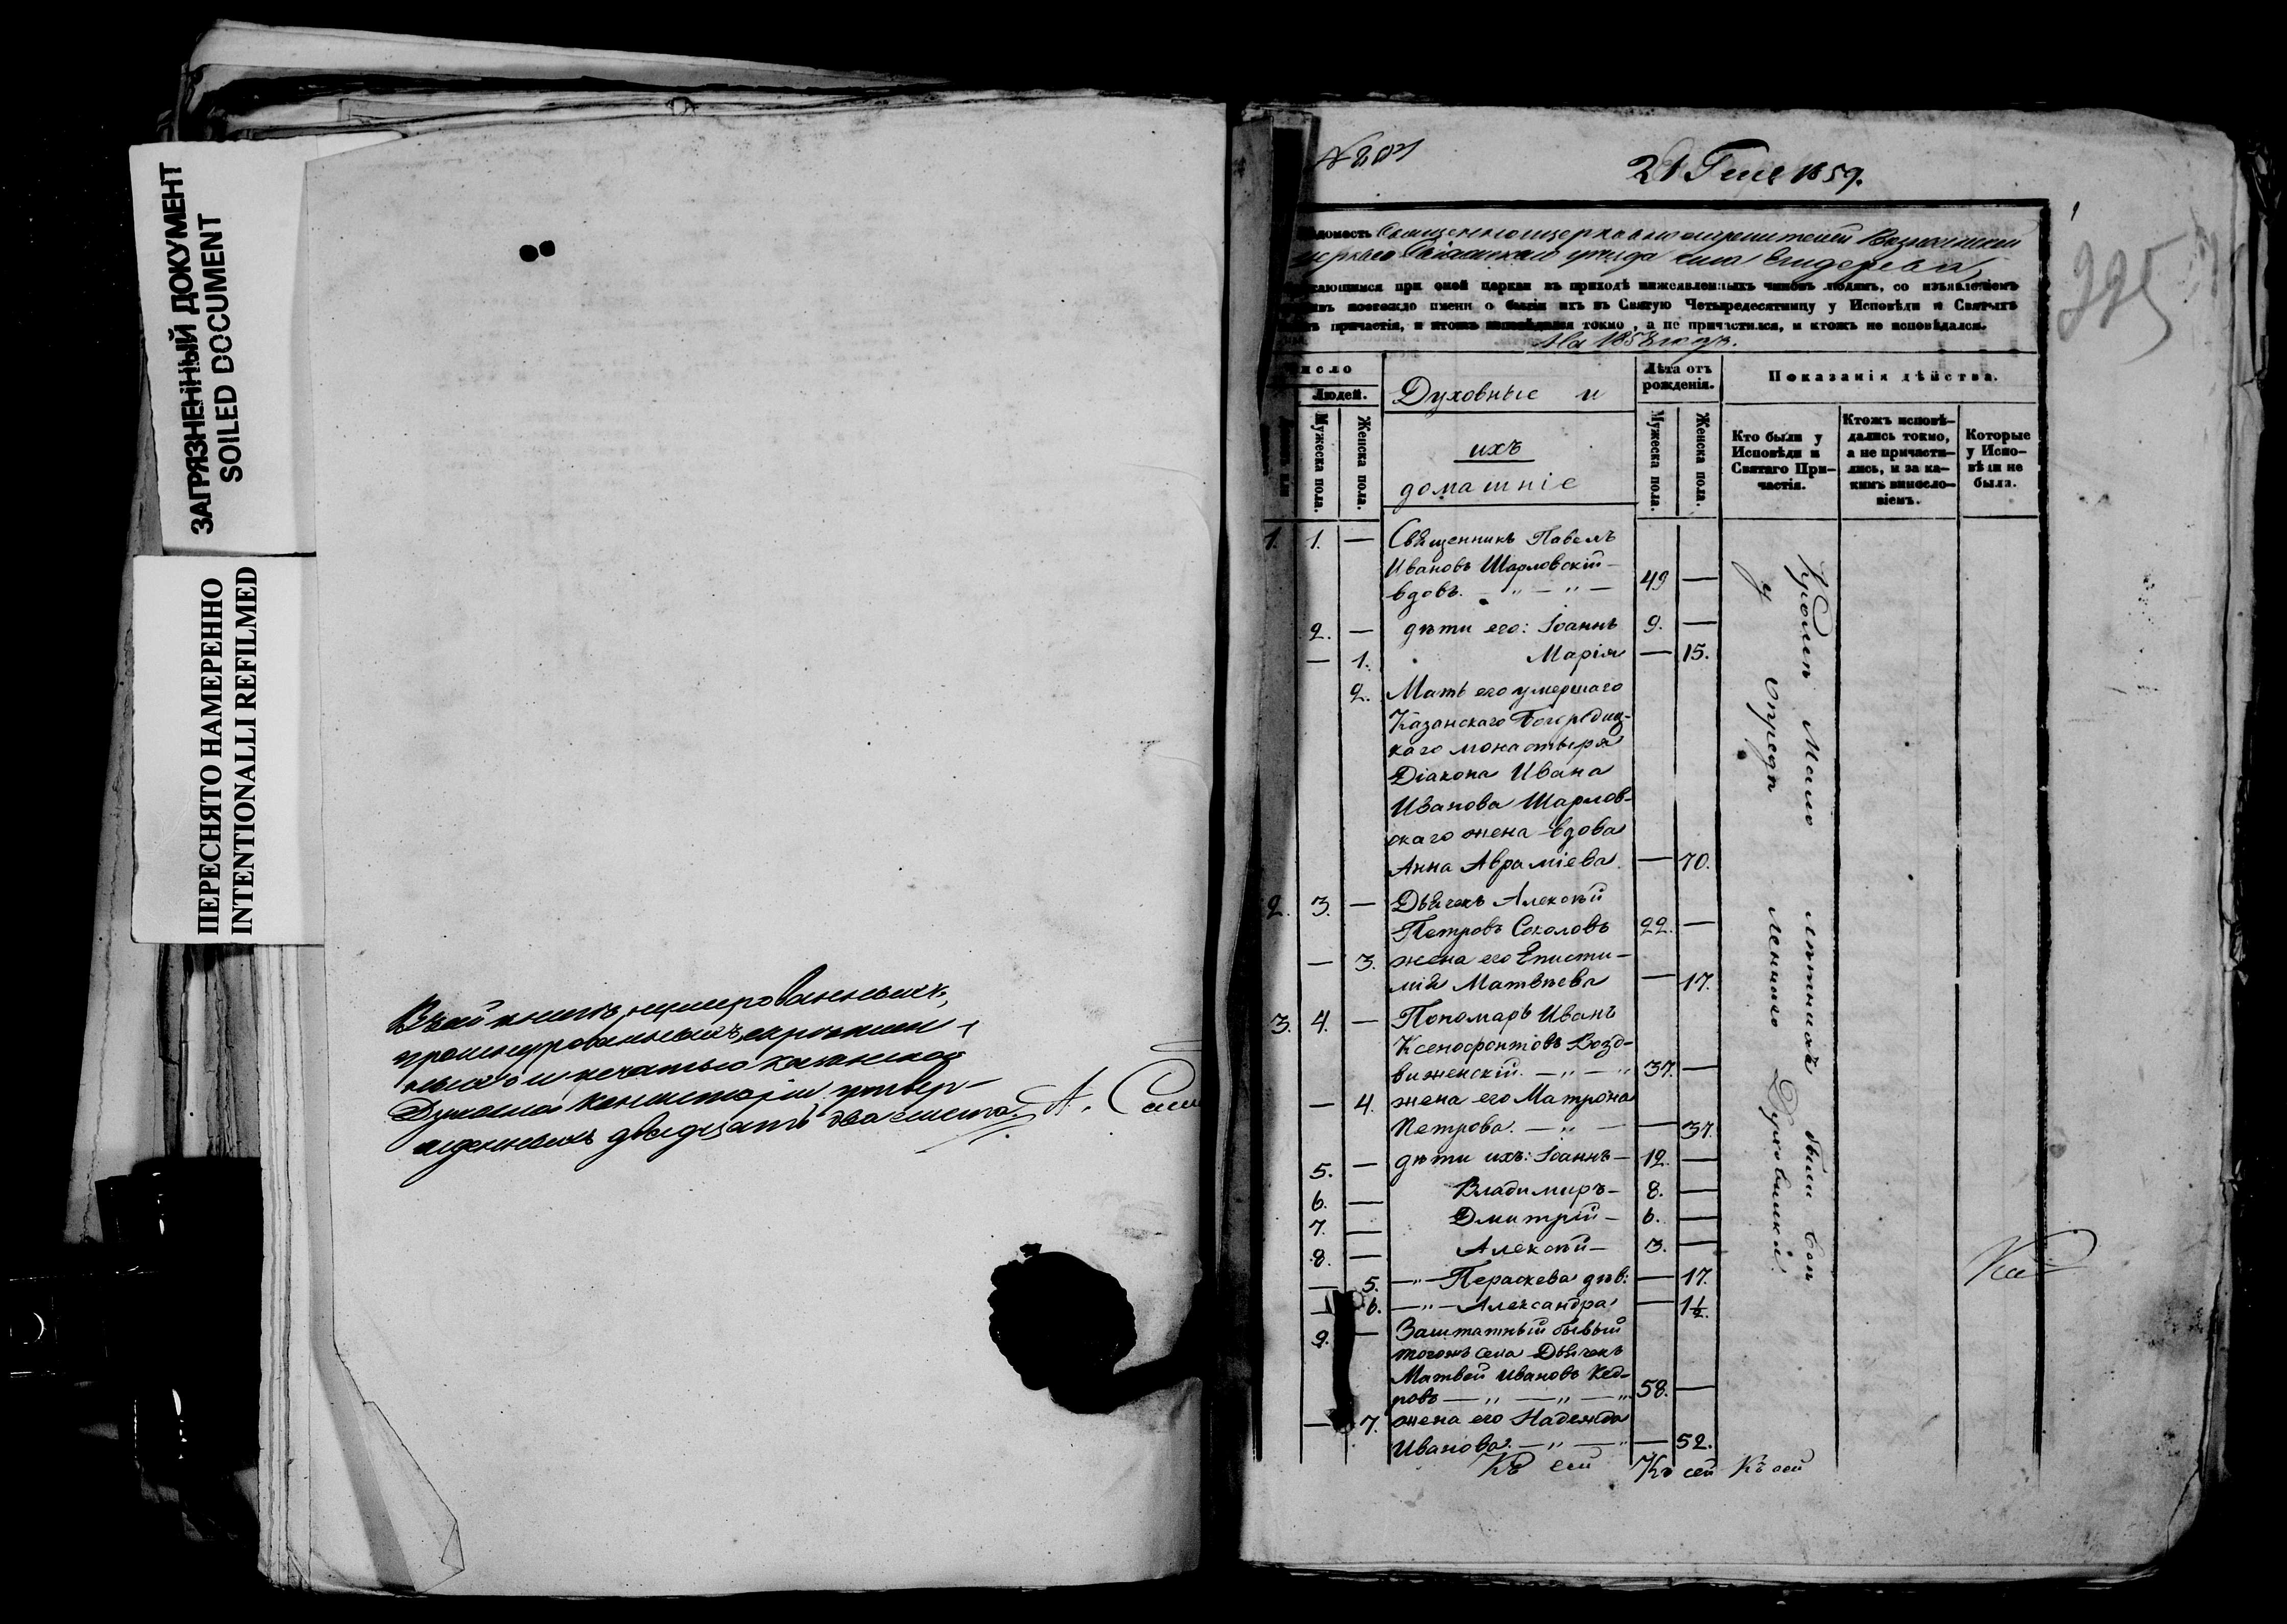 ЗАГРЯЗНЕННЫЙ ДОКУМЕНТ
SOILED DOCUMENT
ПЕРЕСНЯТО НАМЕРЕННО
INTENTIONALLI REFILMED
нумерованныхъ,
прошнурованныхъ,
и печатью Казанской
Духовной Консисторіи утвер-
жденныхъ двадцать два листа.
№
1859.
225
села
при оной церкви въ приходѣ нижеявленныхъ чиновъ людямъ, со изъявленіемъ
имени о бытіи ихъ въ Святую Четыредесятницу у Исповѣди и Святыхъ
причастія, и ктожъ исповѣдался токмо, а не причастился, и ктожъ не исповѣдался.
На 1858 годъ.
Число
Людей.
Мужеска пола.
Женска пола.
Духовные и
ихъ
домашніе
Лѣта отъ
рожденія.
Мужеска пола.
Женска пола.
Показанія дѣйства.
Кто были у
Исповѣди и
Святаго При-
частія.
Ктожъ исповѣ-
дались токмо,
а не причасти-
лись, и за ка-
кимъ виносло-
віемъ.
Которые
у Испо-
вѣди не
были.
1. 1. — Священникъ Павелъ
Ивановъ Шарловскій —
вдовъ. — „ — „ — 49 —
2. — дѣти его: Іоаннъ 9. —
— 1. Марія — 15.
2. Мать его умершаго
Казанскаго Богородиц-
каго монастыря
Діакона Ивана
Иванова Шарлов-
скаго жена вдова
Анна Авраміева — 70.
2. 3. — Дьячекъ Алексѣй
Петровъ Соколовъ 22. —
— 3. жена его Еписти-
мія Матвѣева — 17.
3. 4. — Пономарь Иванъ
Ксенофонтовъ Возд-
виженскій. — „ — „ 37. —
— 4. жена его Матрона
Петрова. — „ — — 37.
5. — дѣти ихъ: Іоаннъ — 12. —
6. — Владимиръ — 8. —
7. — Дмитрій — 6. —
8. — Алексѣй — 3. —
— 5. — „ — Параскева дѣв: — 17.
— 6. — „ — Александра — 1½.
9. — Заштатный бывый
тогожъ села Дьячекъ
Матвей Ивановъ Кед-
ровъ — „ — „ — „ 58. —
— 7. жена его Надежда
Иванова. — „ — „ — 52.
Кромѣ Мало лѣтнихъ были всѣ
у опредѣ леннаго Духовника.
Къ сей Къ сей Къ сей